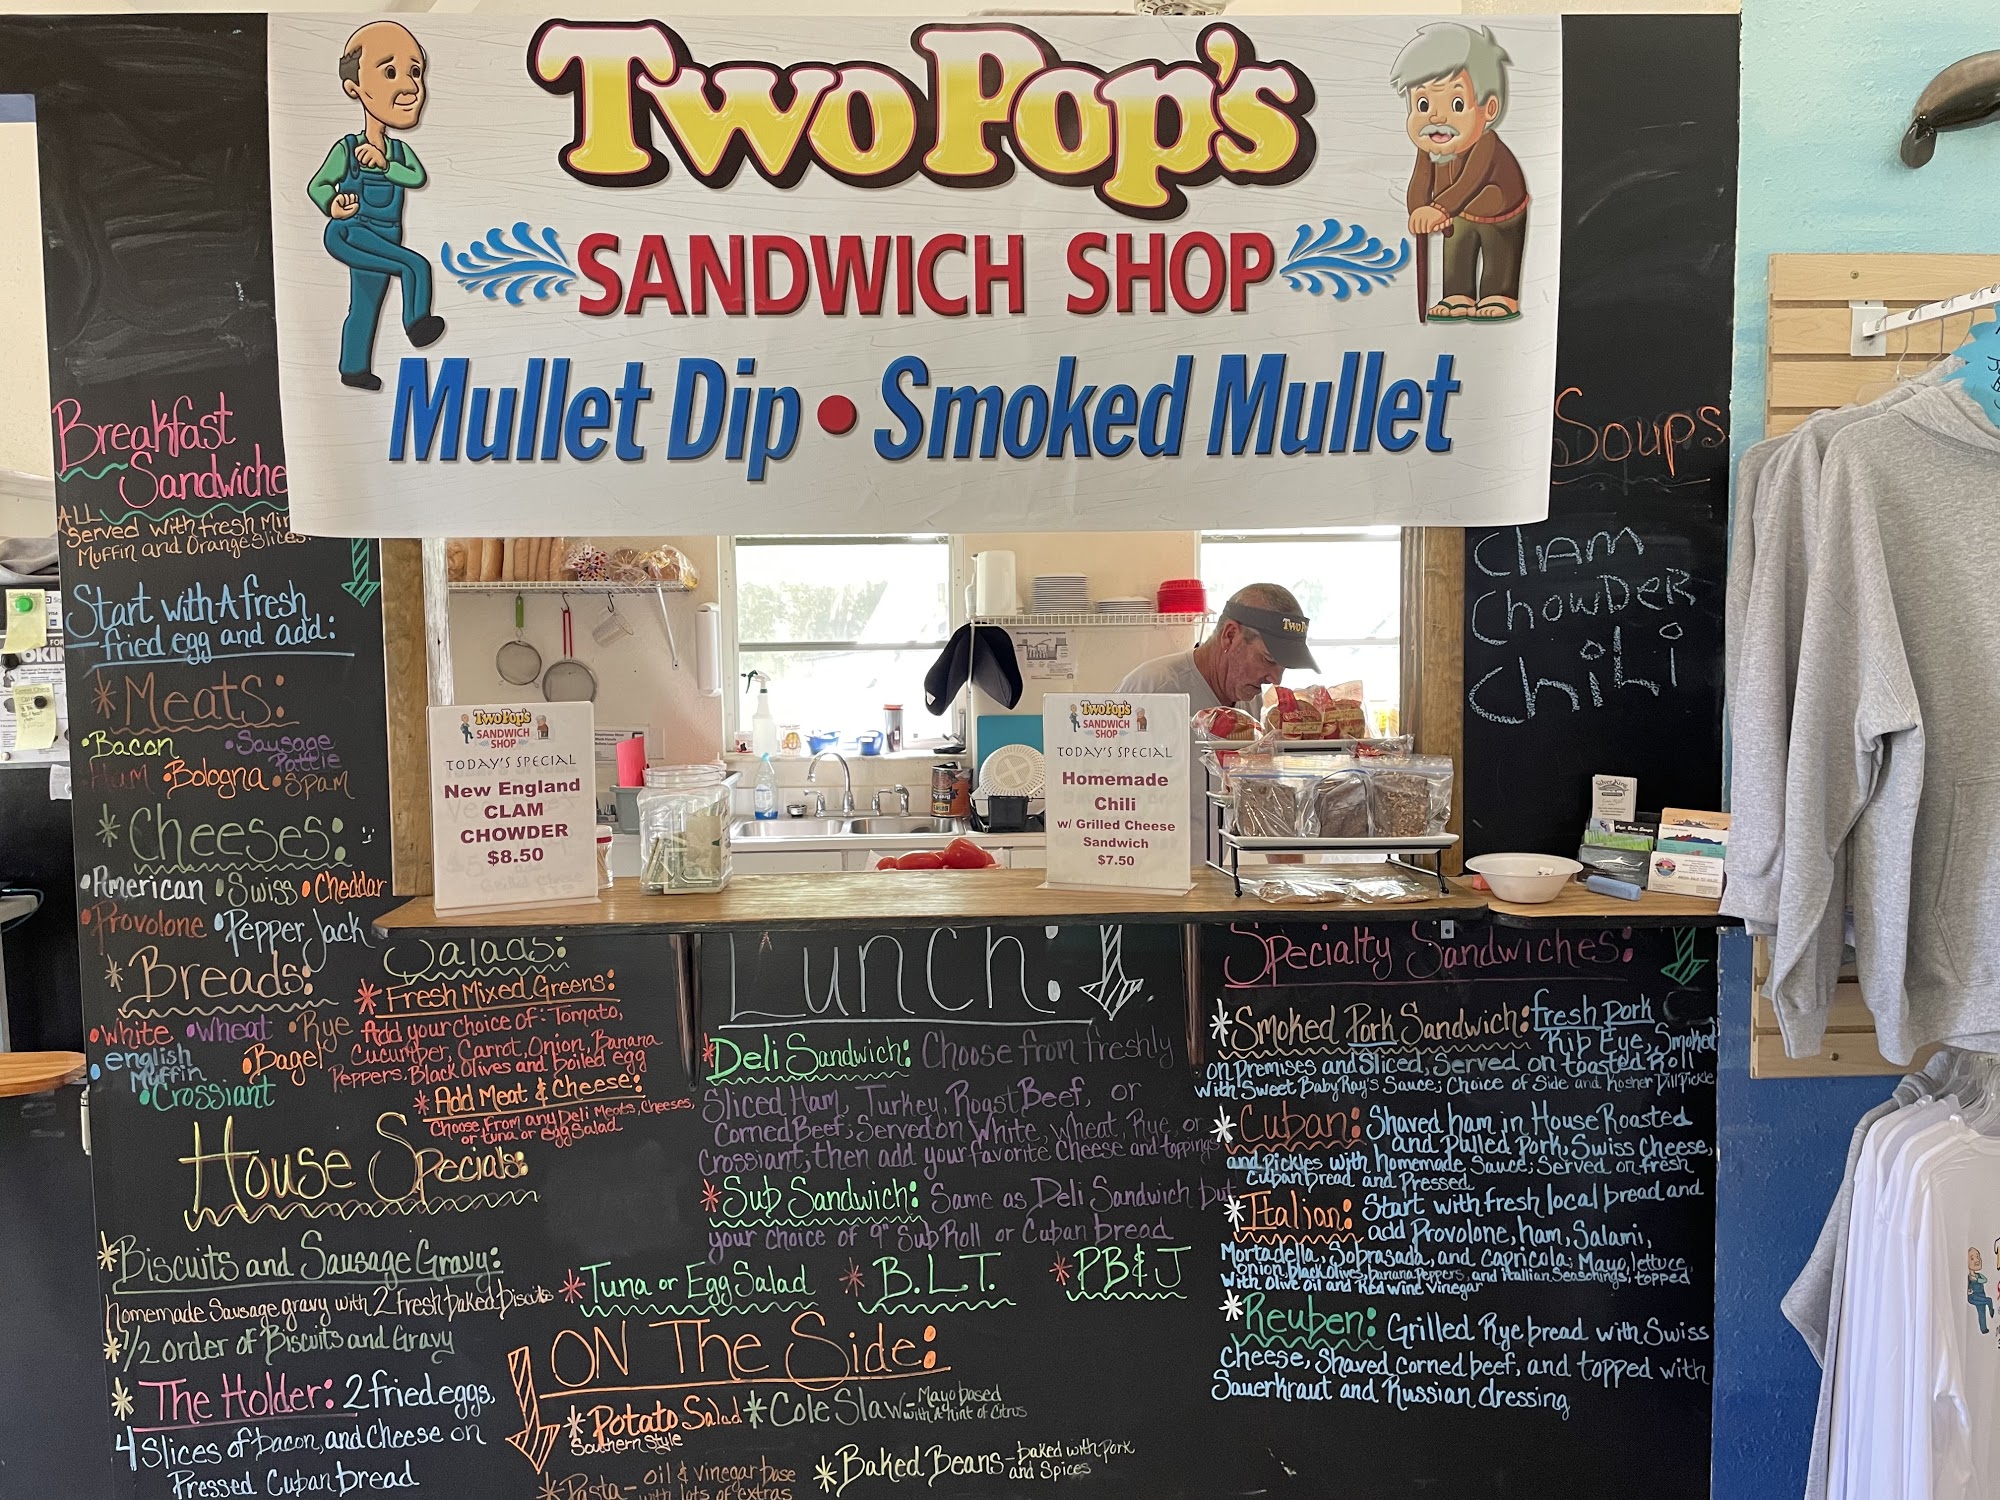 Two Pop's
SANDWICH SHOP
Mullet Dip • Smoked Mullet
Breakfast
Sandwiche
ALL
Served with fresh Min
Muffin and Orange Slices.
Start with A fresh
fried egg and add:
* Meats:
• Bacon • Sausage Pattie
Ham • Bologna • Spam
* Cheeses:
• American • Swiss • Cheddar
• Provolone • Pepper Jack
* Breads:
• White • Wheat • Rye
• english Muffin • Bagel
• Crossiant
Salads:
* Fresh Mixed Greens:
Add your choice of: Tomato,
Cucumber, Carrot, Onion, Banana
Peppers, Black Olives and Boiled egg
* Add Meat & Cheese:
Choose From any Deli Meats, Cheeses,
or tuna or egg Salad
House Specials:
* Biscuits and Sausage Gravy:
Homemade Sausage gravy with 2 fresh baked biscuits
* 1/2 order of Biscuits and Gravy
* The Holder: 2 fried eggs,
4 Slices of bacon, and Cheese on
Pressed Cuban bread
TwoPop's
SANDWICH
SHOP
TODAY'S SPECIAL
New England
CLAM
CHOWDER
$8.50
TwoPop's
SANDWICH
SHOP
TODAY'S SPECIAL
Homemade
Chili
w/ Grilled Cheese
Sandwich
$7.50
Lunch:
* Deli Sandwich: Choose from freshly
Sliced Ham, Turkey, Roast Beef, or
Corned Beef; Served on White, Wheat, Rye, or
Crossiant; then add your favorite Cheese and toppings
* Sub Sandwich: Same as Deli Sandwich but
your choice of 9" Sub Roll or Cuban bread
* Tuna or Egg Salad * B.L.T. * PB&J
ON The Side:
* Potato Salad
Southern Style
* Cole Slaw - Mayo based
with a hint of Citrus
* Baked Beans - baked with pork
and Spices
* Pasta - oil & vinegar base
with lots of extras
Soups
Clam
Chowder
Chili
Specialty Sandwiches:
* Smoked Pork Sandwich: fresh Pork
Rib Eye, Smoked
on Premises and Sliced, Served on toasted Roll
with Sweet Baby Ray's Sauce; Choice of Side and Kosher Dill Pickle
* Cuban: Shaved ham in House Roasted
and Pulled Pork, Swiss Cheese,
and Pickles with homemade Sauce; Served on fresh
Cuban bread and Pressed
* Italian: Start with fresh local bread and
add Provolone, ham, Salami,
Mortadella, Sobrasada, and Capricola; Mayo, lettuce,
onion, black olives, banana Peppers, and Italian Seasonings; topped
with olive oil and Red wine vinegar
* Reuben: Grilled Rye bread with Swiss
cheese, Shaved corned beef, and topped with
Sauerkraut and Russian dressing